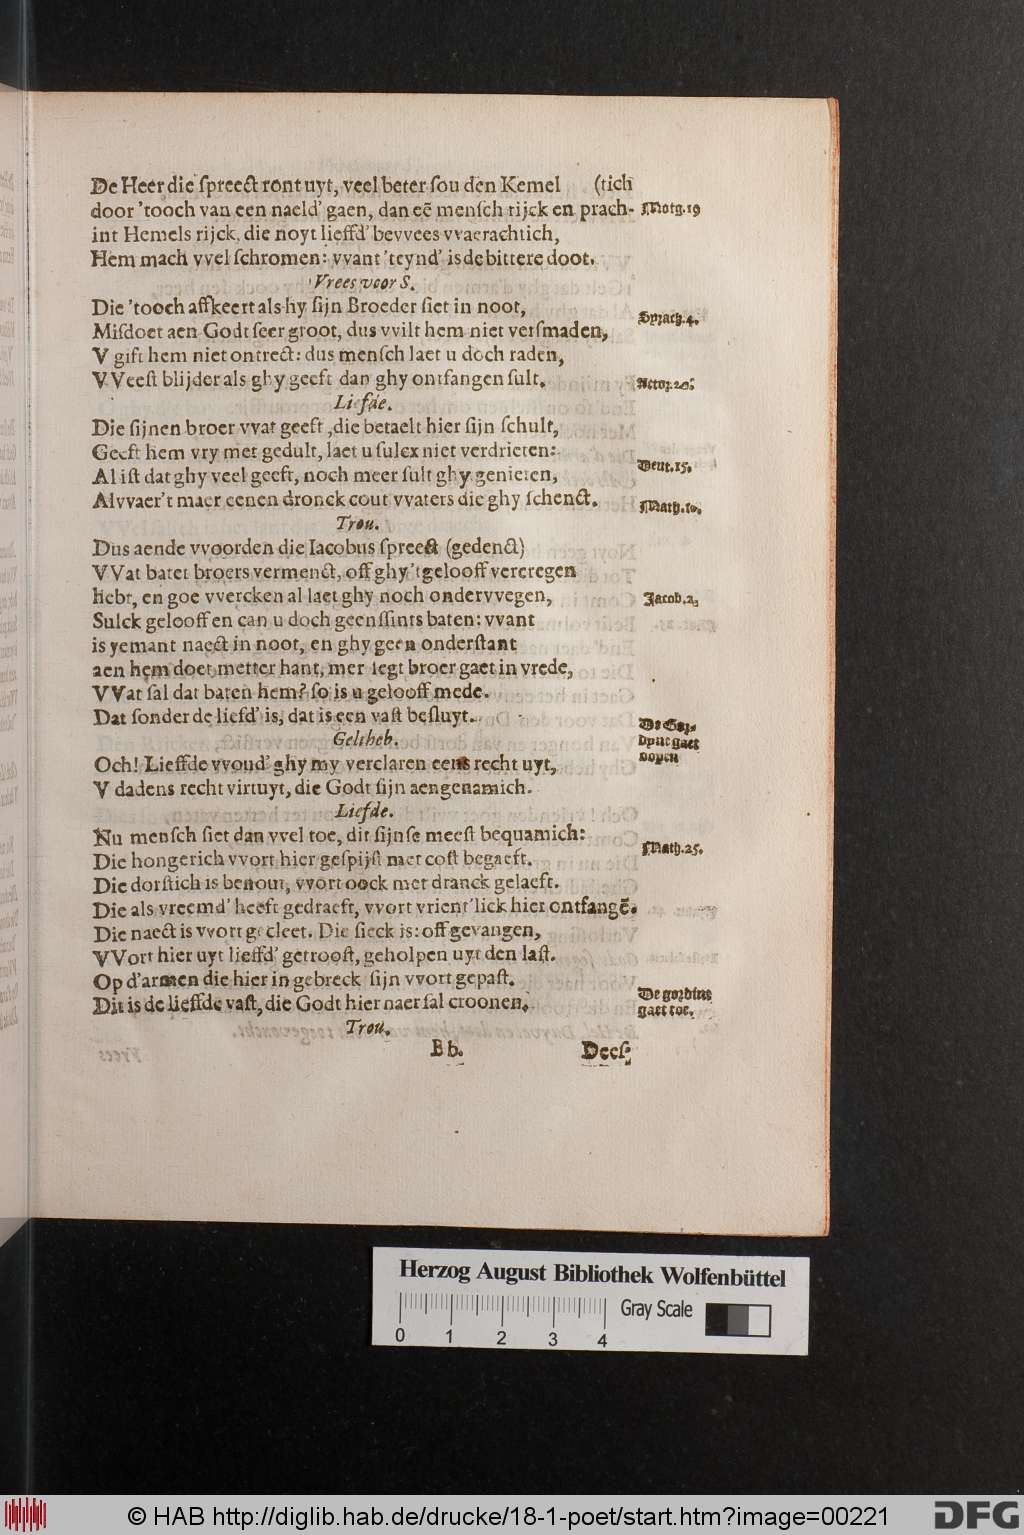 De Heer die ſpreect ront uyt, veel beter ſou den Kemel (tich
door 'tooch van een naeld' gaen, dan eẽ menſch rijck en prach- Motg.19
int Hemels rijck, die noyt lieffd' bevvees vvaerachtich,
Hem mach vvel ſchromen: vvant 'teynd' is de bittere doot.
Vrees voor S.
Die 'tooch affkeert als hy ſijn Broeder ſiet in noot,
Miſdoet aen Godt ſeer groot, dus vvilt hem niet verſmaden, Sprach.4.
V gift hem niet ontrect: dus menſch laet u doch raden,
VVeeſt blijder als ghy geeft dan ghy ontfangen ſult. Actor.20.
Liefde.
Die ſijnen broer vvat geeft, die betaelt hier ſijn ſchult,
Geeft hem vry met gedult, laet u ſulcx niet verdrieten:
Al iſt dat ghy veel geeft, noch meer ſult ghy genieten, Deut.15.
Alvvaer't maer eenen dronck cout vvaters die ghy ſchenct. Math.10.
Trou.
Dus aende vvoorden die Iacobus ſpreect (gedenct)
VVat batet broers vermenct, off ghy 't gelooff vercregen
hebt, en goe vvercken al laet ghy noch ondervvegen, Jacob.2.
Sulck gelooff en can u doch geenſſints baten: vvant
is yemant naect in noot, en ghy geen onderſtant
aen hem doet metter hant, mer ſegt broer gaet in vrede,
VVat ſal dat baten hem? ſo is u gelooff mede.
Dat ſonder de liefd' is, dat is een vaſt beſluyt.
De Gor-
Geltheb.
dyne gaet
open
Och! Lieffde vvoud' ghy my verclaren eens recht uyt,
V dadens recht virtuyt, die Godt ſijn aengenamich.
Liefde.
Nu menſch ſiet dan vvel toe, dit ſijnſe meeſt bequamich:
Die hongerich vvort hier geſpijſt met coſt begaeft. Math.25.
Die dorſtich is benout, vvort oock met dranck gelaeft.
Die als vreemd' heeft gedraeft, vvort vrient'lick hier ontfangẽ.
Die naect is vvort gecleet. Die ſieck is: off gevangen,
VVort hier uyt lieffd' getrooſt, geholpen uyt den laſt.
Op d'armen die hier in gebreck ſijn vvort gepaſt.
Dit is de lieffde vaſt, die Godt hier naer ſal croonen.
De gordine
gaet toe.
Trou.
Bb. Deeſ
Herzog August Bibliothek Wolfenbüttel
0 1 2 3 4 Gray Scale
© HAB http://diglib.hab.de/drucke/18-1-poet/start.htm?image=00221
DFG